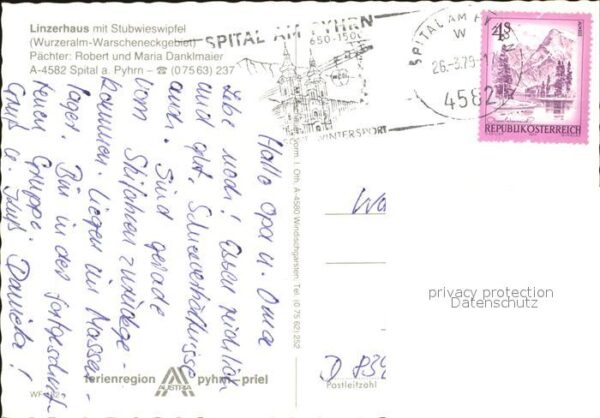 Linzerhaus mit Stubwieswipfel
(Wurzeralm-Warscheneckgebiet)
Pächter: Robert und Maria Danklmaier
A-4582 Spital a. Pyhrn – ☎ (07563) 237
SPITAL AM PYHRN
650-150
WINTERSPORT
SPITAL AM
26.-3.79-17
4582
4S
REPUBLIK ÖSTERREICH
Hallo Opa u. Oma
Lebe noch! Essen reichlich
und gut, Schneeverhältnisse
auch. Sind gerade
vom Skifahren zurückge-
kommen. Liegen im Massen-
lager. Bin in der fortgeschrit-
tenen Gruppe.
Gruß u. Kuß Daniela!
A-4580 Windischgarsten, Tel. (0 75 62) 252
D 839
Postleitzahl
privacy protection
Datenschutz
ferienregion
AUSTRIA
pyhrn-priel